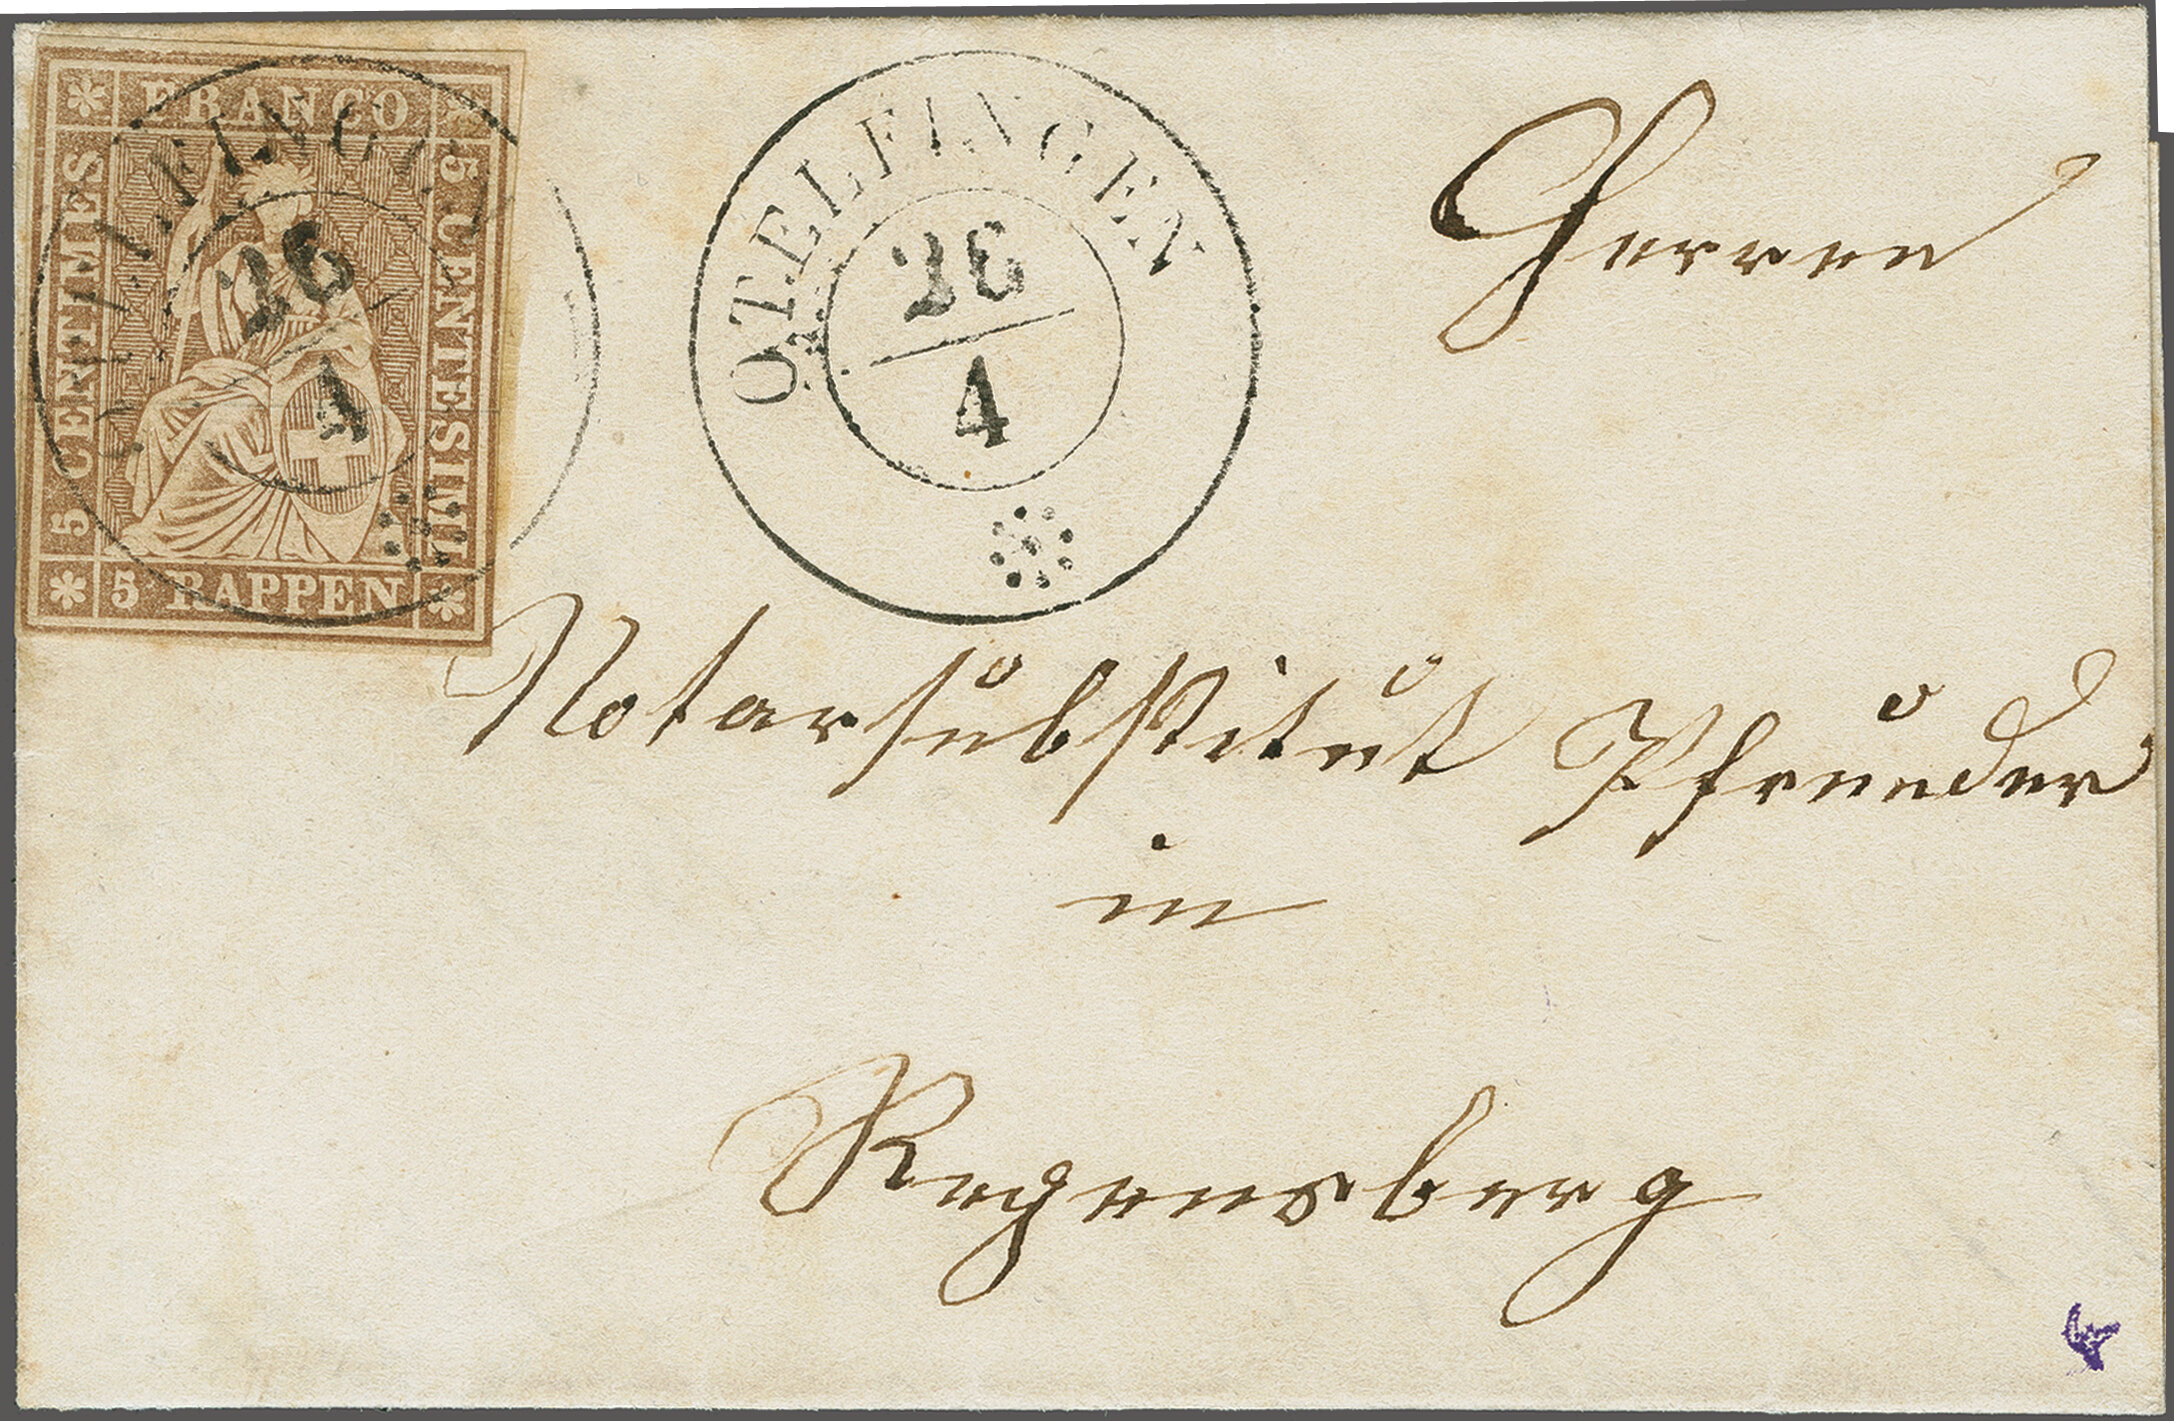 FRANCO
5 CENTIMES
5 CENTESIMI
5 RAPPEN
OTELFINGEN
26
4
OTELFINGEN
26
4
Herren
Notarsubstitut Pfrunder
in
Regensberg